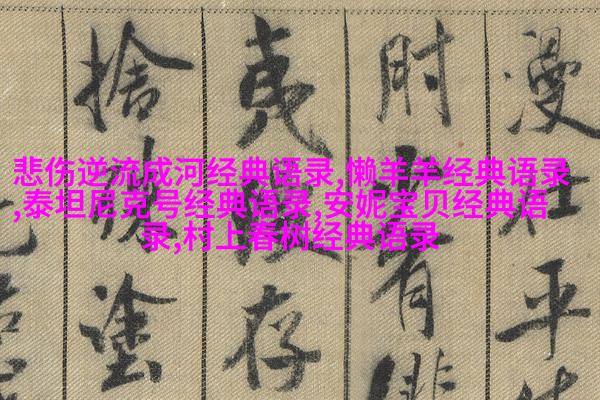 悲伤逆流成河经典语录,懒羊羊经典语录
,泰坦尼克号经典语录,安妮宝贝经典语
录,村上春树经典语录
漫 平
有
夷 存
捨 塗